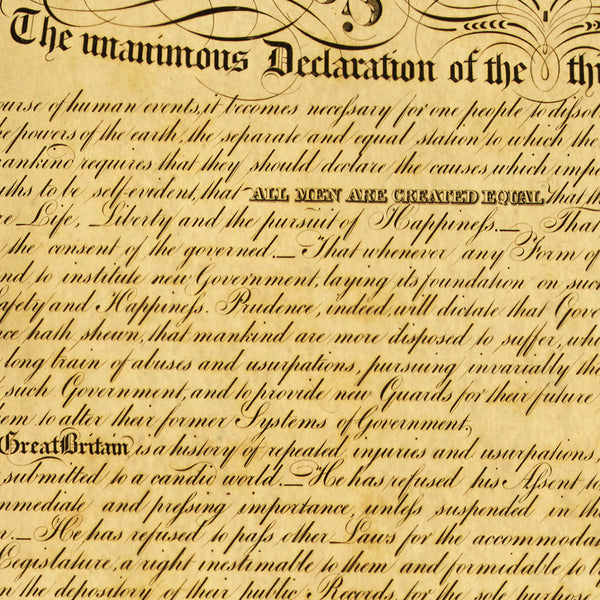 The unanimous Declaration of the thi
ourse of human events, it becomes necessary for one people to dissol
he powers of the earth, the separate and equal station to which the
mankind requires that they should declare the causes which impe
uths to be self-evident, that ALL MEN ARE CREATED EQUAL that th
re Life, Liberty and the pursuit of Happiness._ That
the consent of the governed._ That whenever any Form of
nd to institute new Government, laying its foundation on suc
Safety and Happiness. Prudence, indeed, will dictate that Gove
nce hath shewn, that mankind are more disposed to suffer, whi
long train of abuses and usurpations, pursuing invariably th
such Government, and to provide new Guards for their future
hem to alter their former Systems of Government.
Great Britain is a history of repeated injuries and usurpations,
submitted to a candid world._ He has refused his Assent to
mmediate and pressing importance, unless suspended in th
n._ He has refused to pass other Laws for the accommoda
Legislature, a right inestimable to them and formidable to t
m the depository of their public Records, for the sole purpose